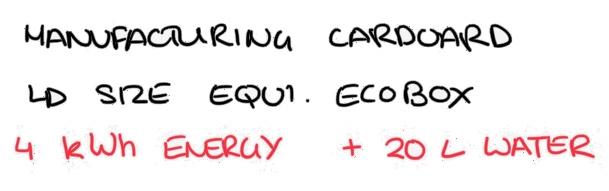 MANUFACTURING CARDBOARD
LD SIZE EQUI. ECOBOX
4 kWh ENERGY + 20 L WATER